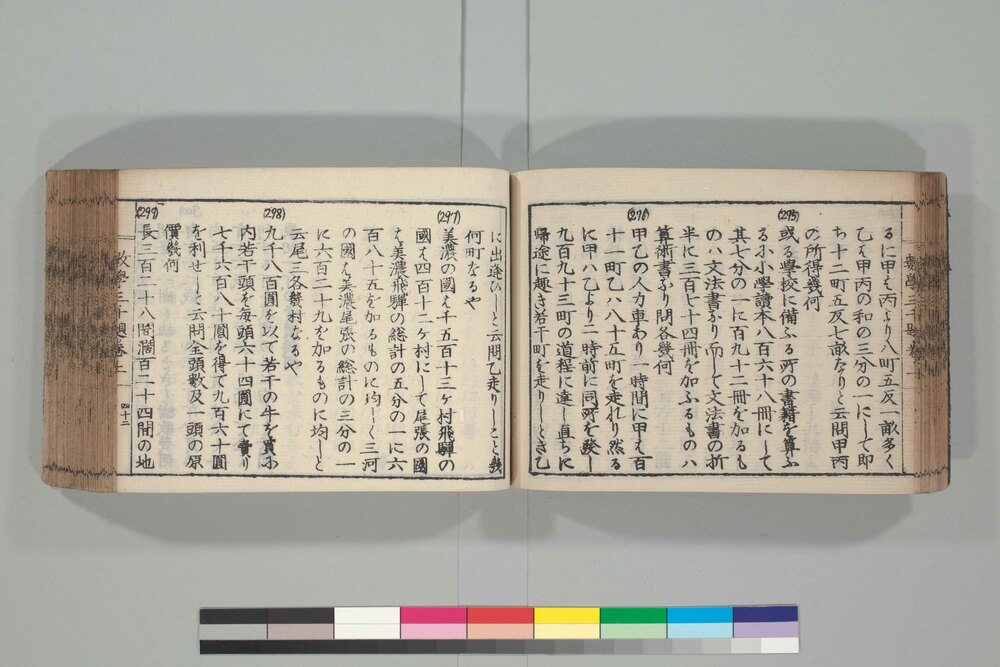 るに甲は丙より八町五反一畝多く
乙は甲丙の和の三分の一にして即
ち十二町五反七畝なりと云問甲丙
の所得幾何
(295)
或る學校に備ふる所の書籍を算ふ
るに小學讀本八百六十八冊にして
其七分の一に百九十二冊を加るも
のハ文法書なり而して文法書の折
半に三百七十四冊を加ふるものハ
算術書なり問各幾何
(296)
甲乙の人力車あり一時間に甲は百
十一町乙ハ八十五町を走れり然る
に甲ハ乙より二時前に同所を發し
九百九十三町の道程に達し直ちに
帰途に趣き若干町を走りしとき乙
に出逢ひしと云問乙走りしこと幾
何町なるや
(297)
美濃の國は千五百十三ヶ村飛騨の
國は四百十二ヶ村にして尾張の國
は美濃飛騨の総計の五分の一に六
百八十五を加るものに均しく三河
の國は美濃尾張の総計の三分の一
に六百二十九を加るものに均しと
云尾三各幾村なるや
(298)
九千八百圓を以て若干の牛を買ふ
内若干頭を毎頭六十四圓にて賣り
七千六百八十圓を得て九百六十圓
を利せしと云問全頭數及一頭の原
價幾何
(299)
長三百二十八間濶百二十四間の地
數學三千題卷上
四十三